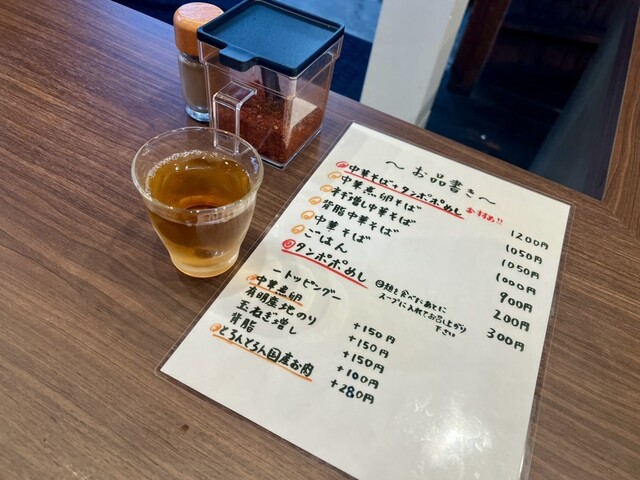 〜お品書き〜
中華そば+タンポポめし 1200円
中華煮卵そば 1050円
ネギ増し中華そば 1050円
背脂中華そば 1000円
中華そば 900円
ごはん 200円
タンポポめし 300円
麺を食べたあとに
スープに入れてお召し上がり
下さい
ートッピングー
中華煮卵 +150円
有明産地のり +150円
玉ねぎ増し +150円
背脂 +100円
とろんとろん国産お肉 +280円